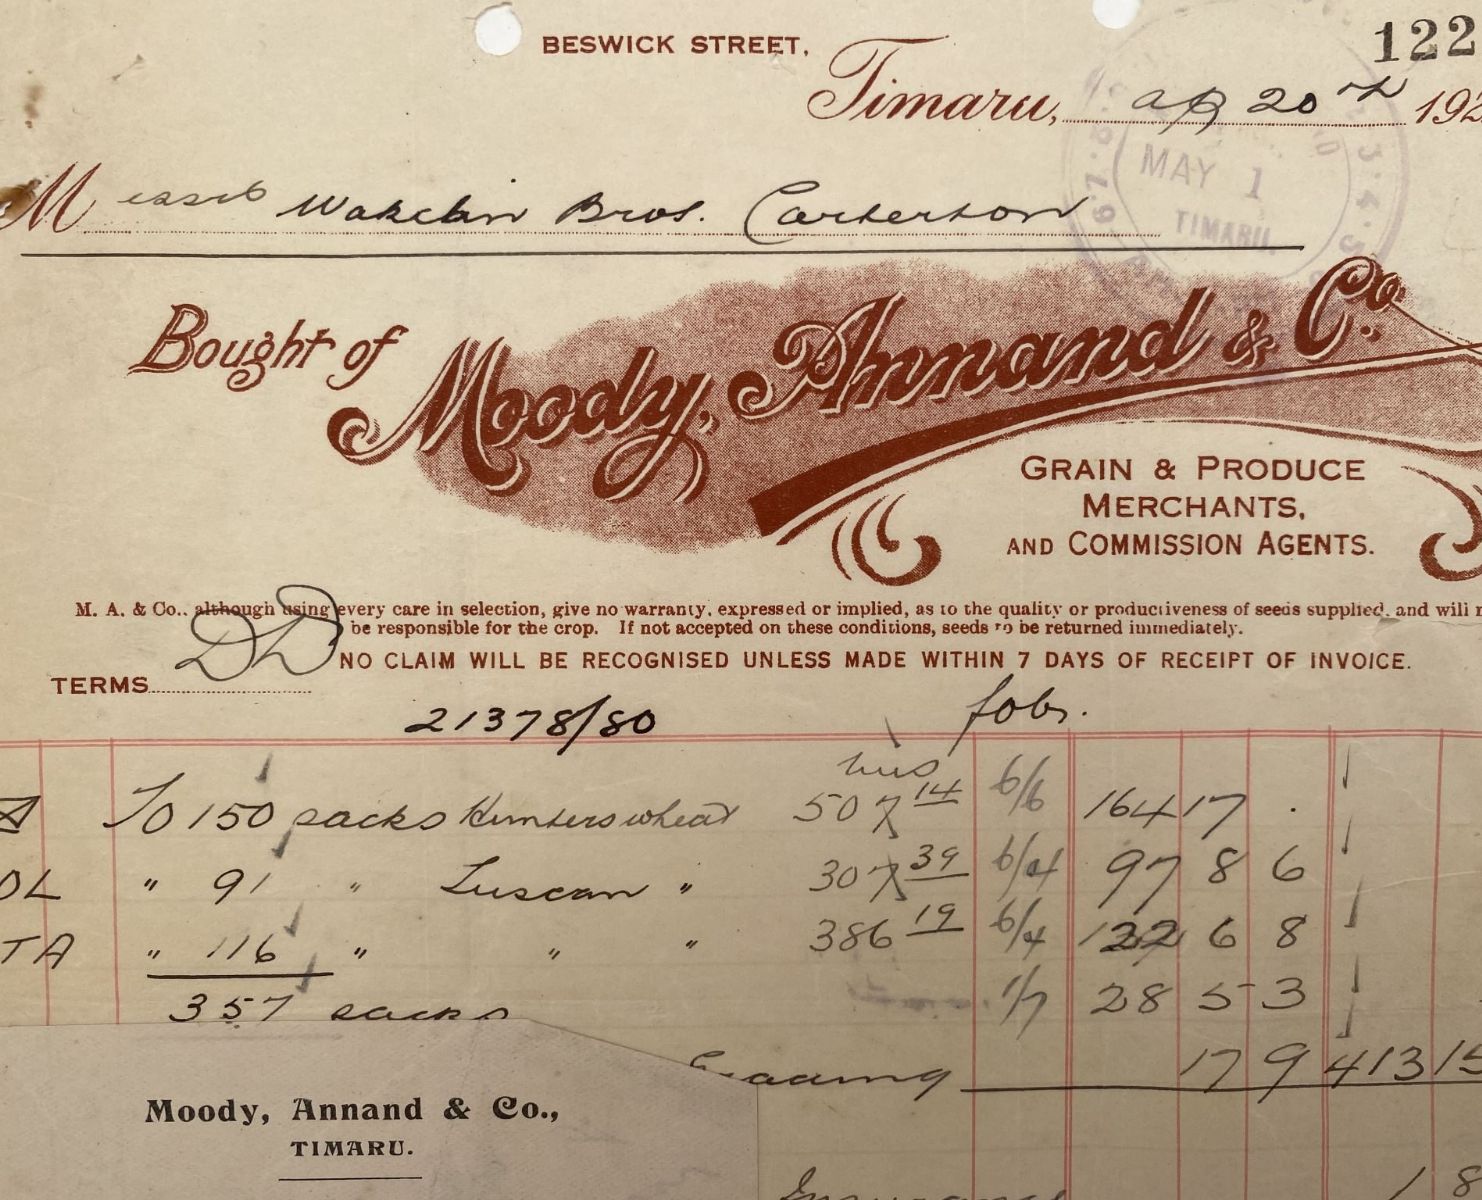 BESWICK STREET,
122
Timaru, Ap 20th 192
Messrs Wakelin Bros. Carterton
MAY 1
TIMARU.
Bought of Moody, Annand & Co.
GRAIN & PRODUCE
MERCHANTS,
AND COMMISSION AGENTS.
M. A. & Co., although using every care in selection, give no warranty, expressed or implied, as to the quality or productiveness of seeds supplied, and will
be responsible for the crop. If not accepted on these conditions, seeds to be returned immediately.
NO CLAIM WILL BE RECOGNISED UNLESS MADE WITHIN 7 DAYS OF RECEIPT OF INVOICE.
TERMS DD
21378/80 fobs.
To 150 sacks Hunters wheat 507 14 6/6 164 17 .
OL " 91 " Tuscan " 307 39 6/4 97 8 6
TA " 116 " " " 386 19 6/4 122 6 8
357 sacks 1/7 28 5 3
Grading 17 9 413 15
Moody, Annand & Co.,
TIMARU.
Insurance 1 8